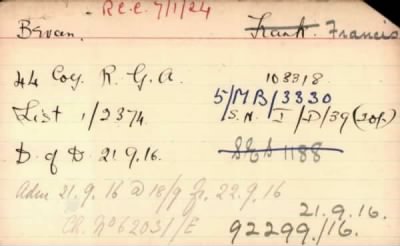 Rec. 7/1/24
Bevan. Frank. Francis
44 Coy. R. G. A. 108318
5/MB/3330
List 1/2374. S.N. I/D/39 (20/-)
D of D 21.9.16. SES 1188
Adm 21.9.16 D 18/9 fr. 22.9.16
21.9.16.
Ch. No 62031/E 92299/16.